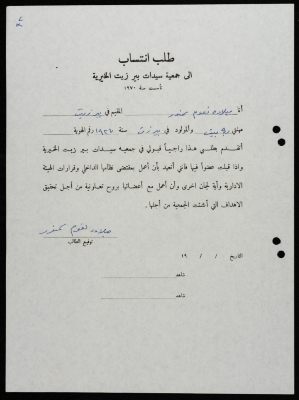 طلب انتساب
الى جمعية سيدات بير زيت الخيرية
تأسست سنة ١٩٧٠
أنا ميلاده نعوم المقيم في بيرزيت
مهنتي ربة بيت والمولود في بيرزيت سنة ١٩٣٦ رقم الهوية
أتقدم بطلبي هذا راجياً قبولي في جمعية سيدات بير زيت الخيرية
واذا قبلت عضواً فيها فانني أتعهد بأن أعمل بمقتضى نظامها الداخلي وقرارات الهيئة
الادارية وأية لجان اخرى وأن أعمل مع أعضائها بروح تعاونية من أجل تحقيق
الاهداف التي أنشئت الجمعية من أجلها.
ميلاده نعوم
توقيع الطالب
التاريخ / / ١٩
شاهد
شاهد